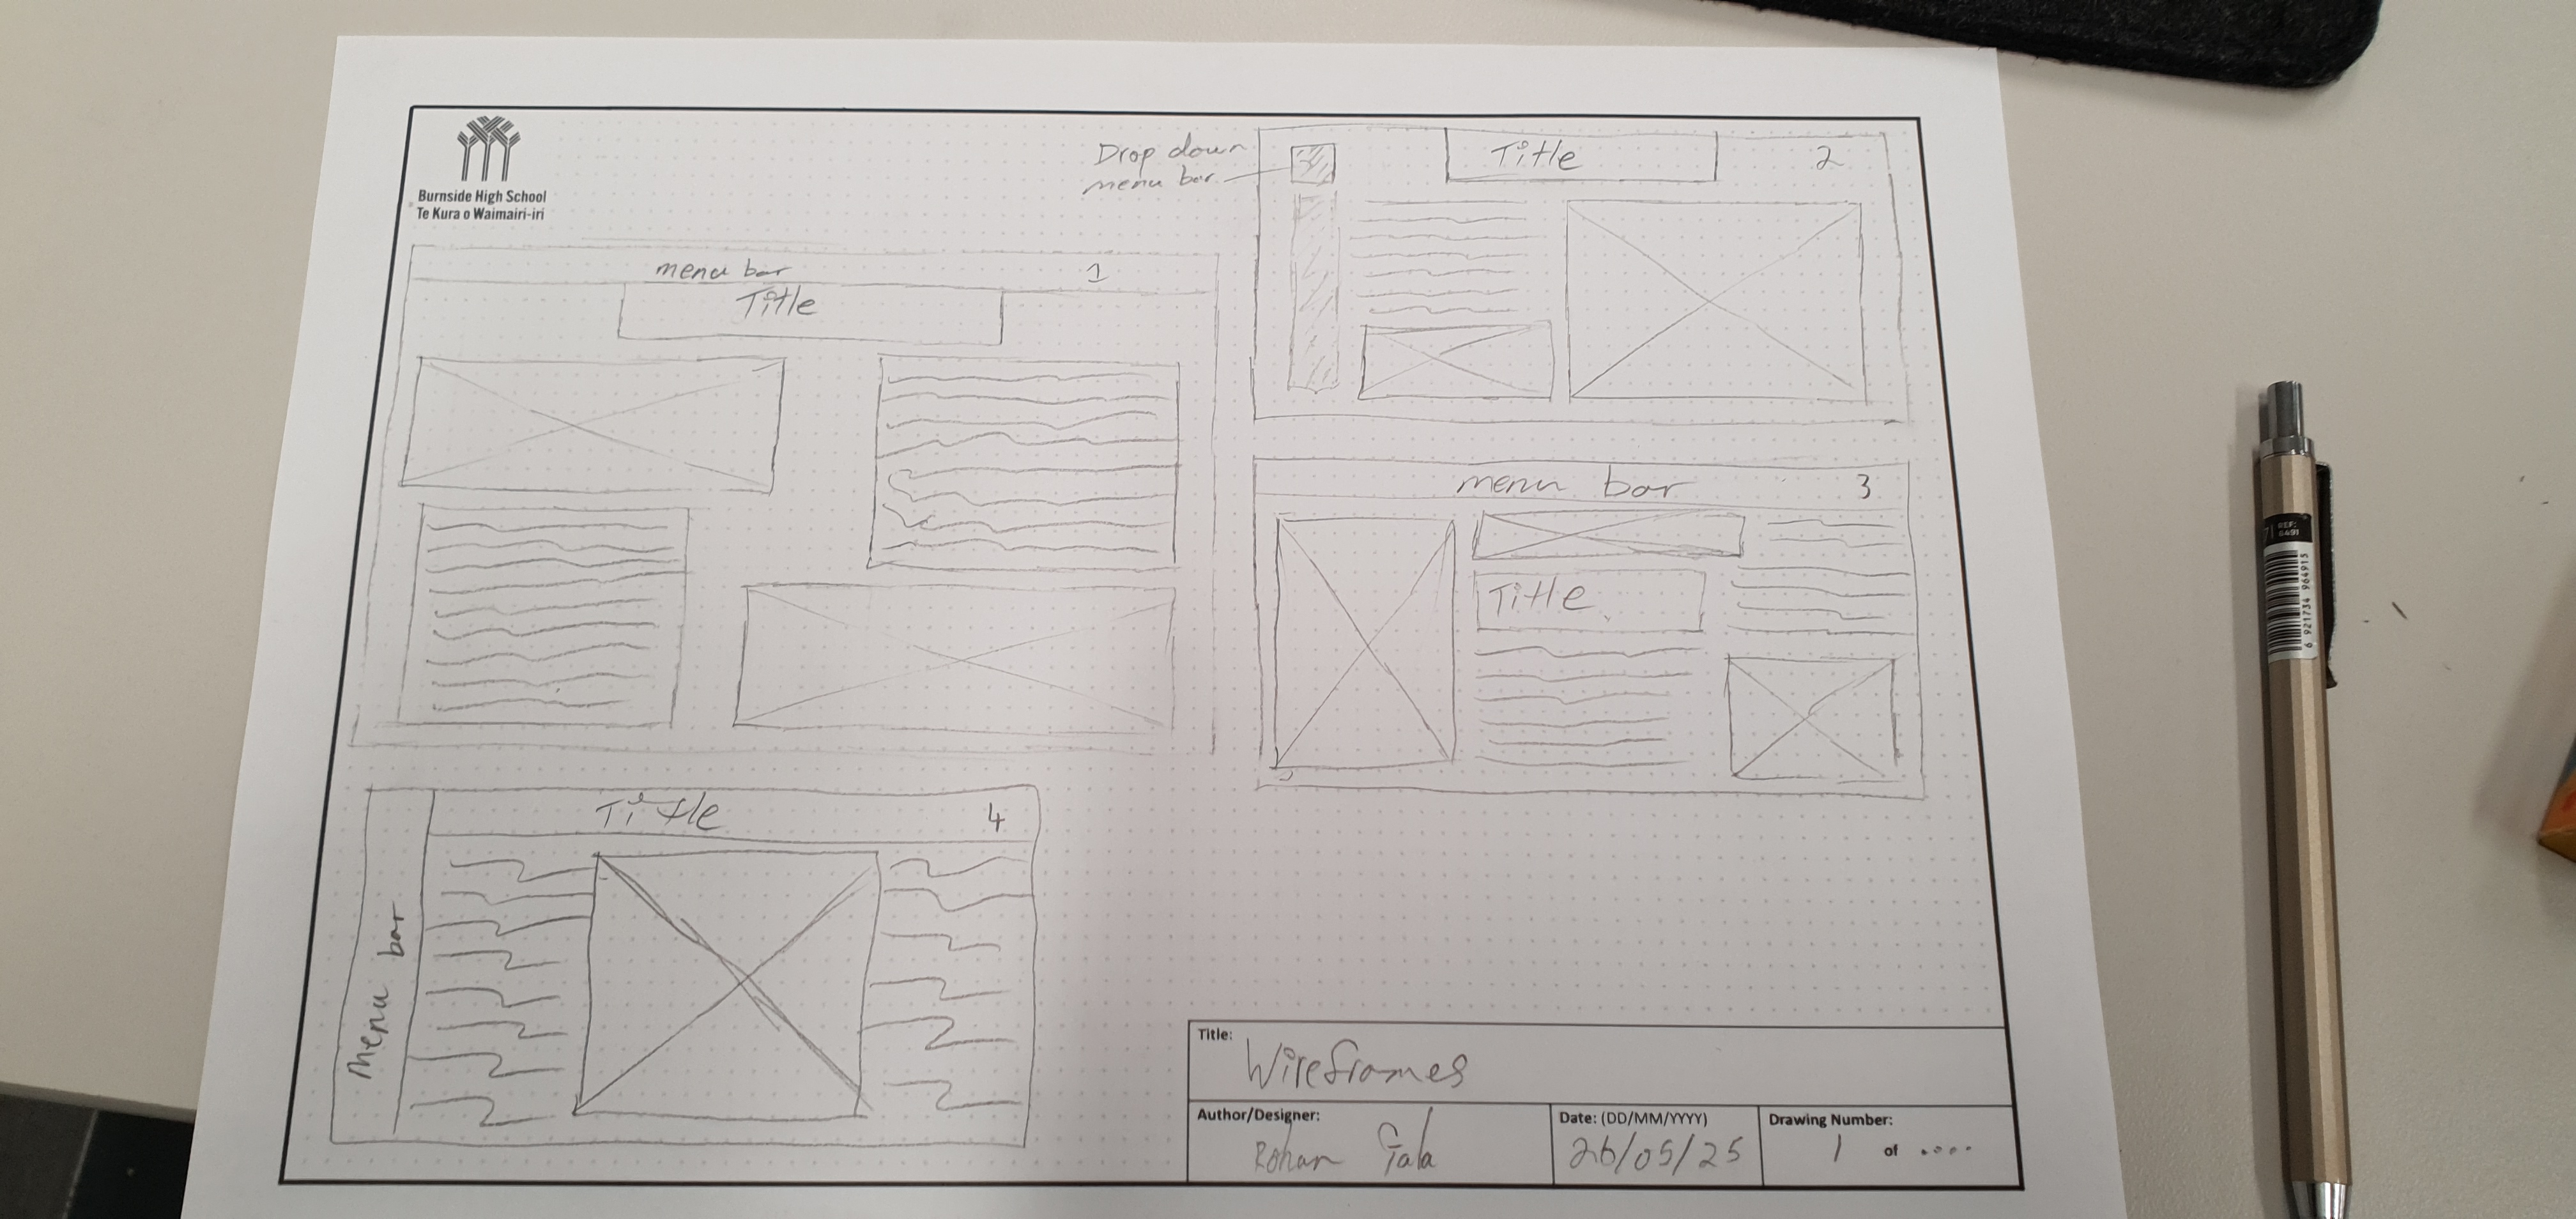 Burnside High School
Te Kura o Waimairi-iri
menu bar
1
Title
Drop down
menu bar
Title
2
menu bar
3
Title
menu bar
Title
4
Title:
Wireframes
Author/Designer:
Rohan Gala
Date: (DD/MM/YYYY)
26/05/25
Drawing Number:
1 of ....
REF:
6 921734 964915